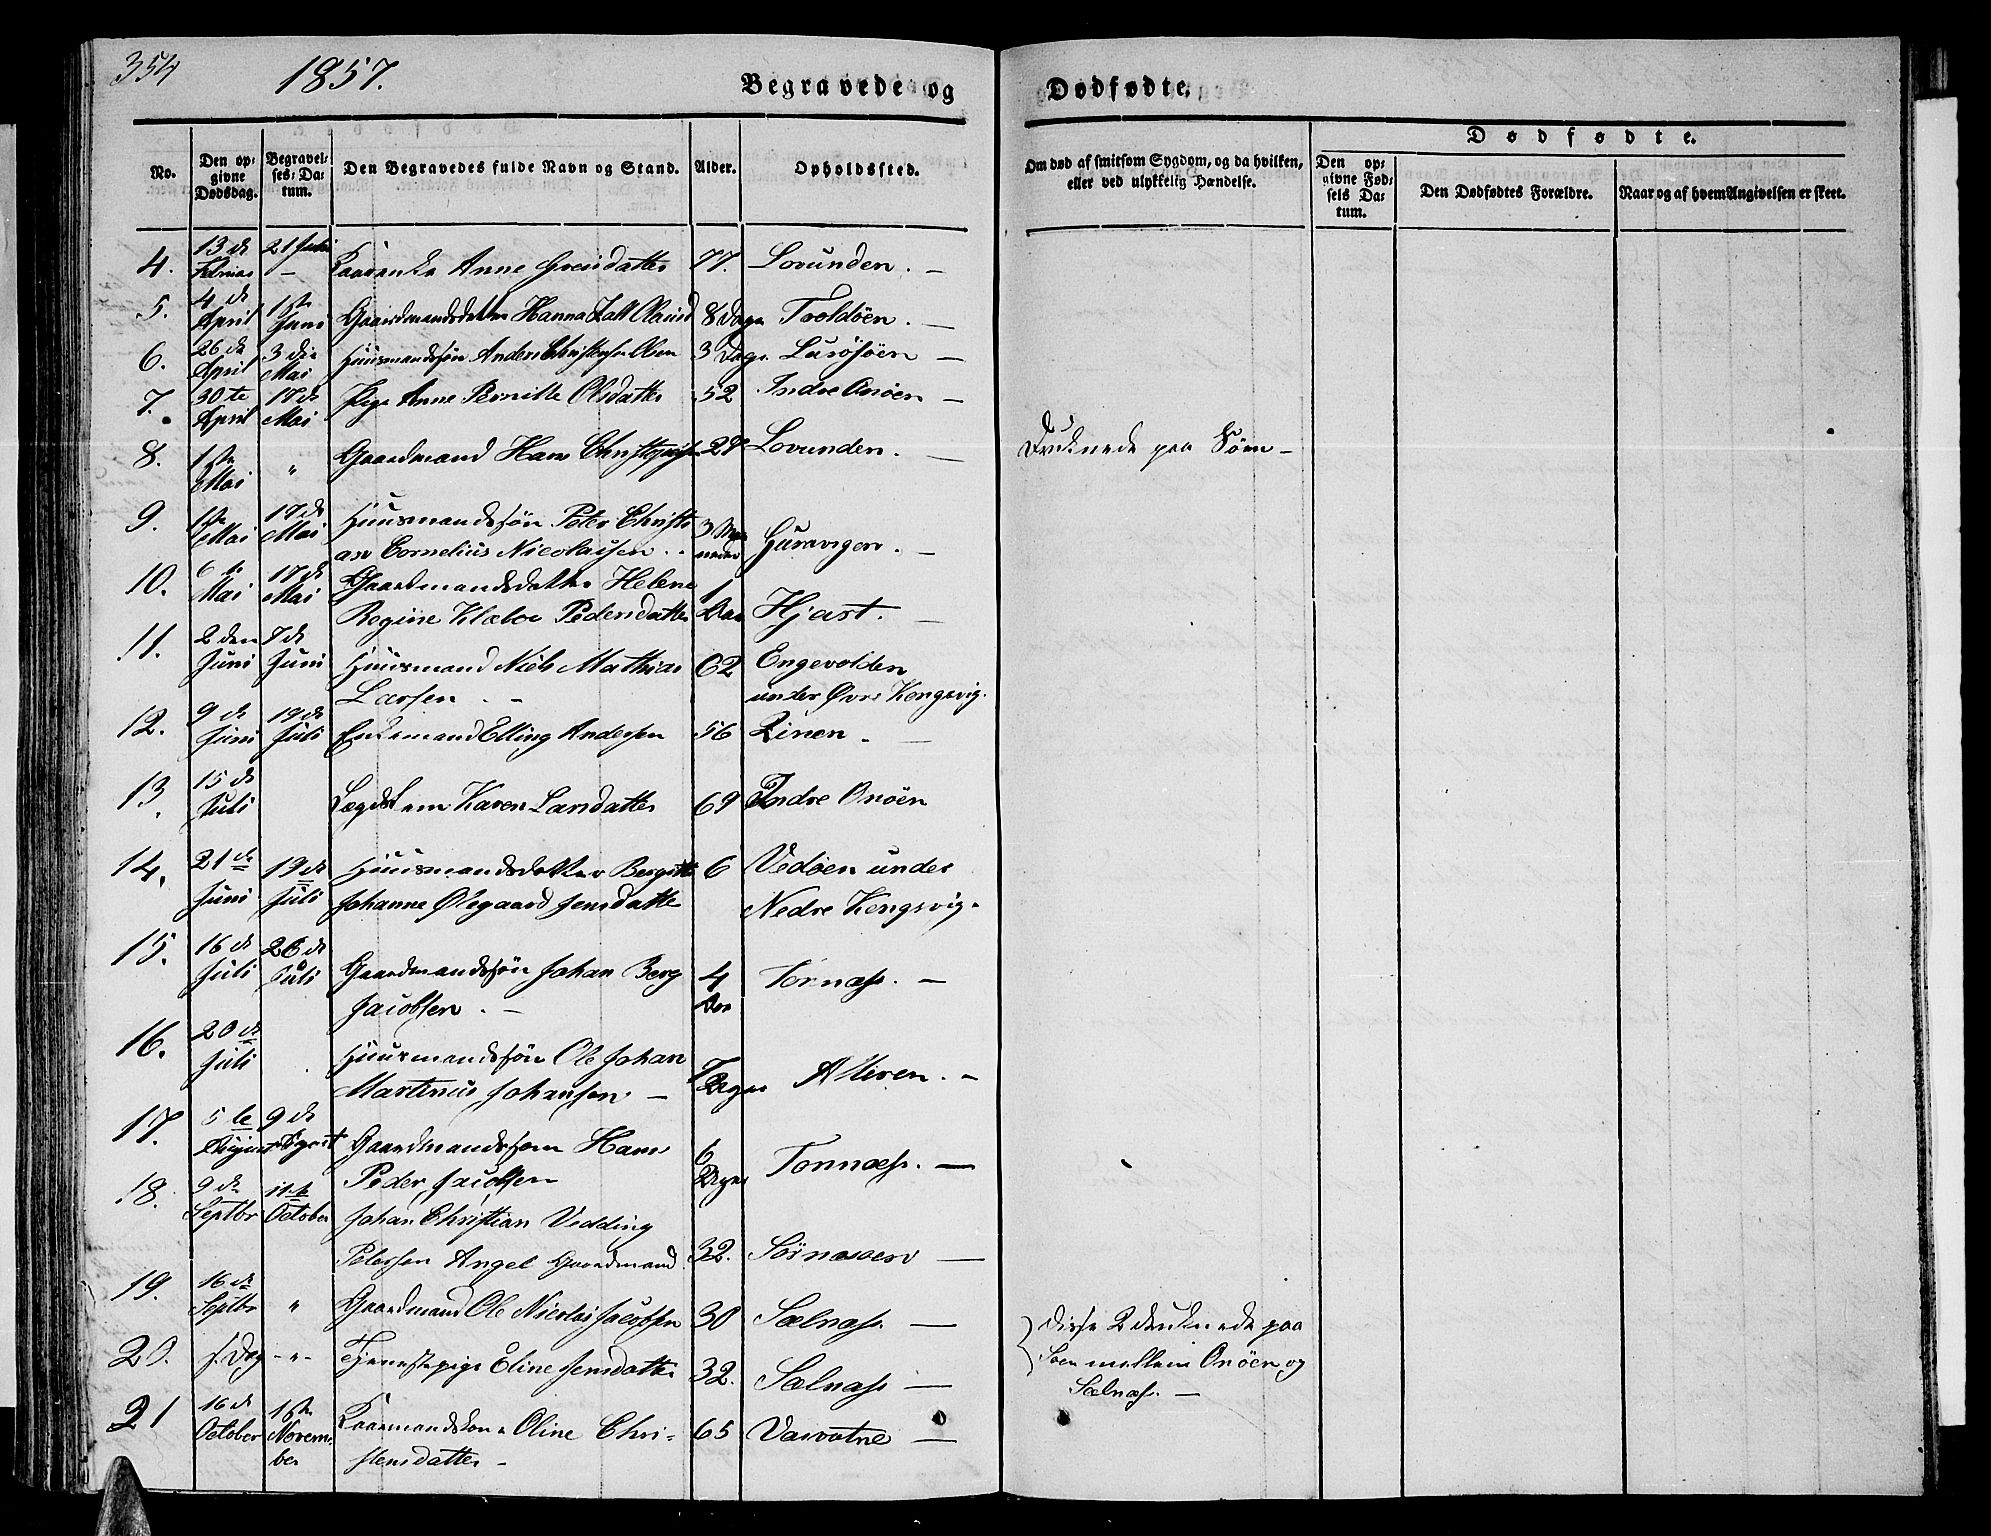 354
1857.
Begravede og
Dødfødte.
No.
Den opgivne Dødsdag.
Begravelses-Datum.
Den Begravedes fulde Navn og Stand.
Alder.
Opholdssted.
Om død af smitsom Sygdom, og da hvilken,
eller ved ulykkelig Hændelse.
Dødfødte.
Den opgivne Fødsels Datum.
Den Dødfødtes Forældre.
Naar og af hvem Angivelsen er skeet.
4. 13de 21 Juli
Februar - Anne 77. Lovunden. -
5. 4de April 1ste Juni Gaardmandsdatter Hanna 8 Dage Troldöen. -
6. 26de April 3die Mai Huusmandssøn Anders Christensen Olsen 3 Dage Luröföen -
7. 30te April 17de Mai Pige Anne Pernille Olsdatter 52 Indre Onöen -
8. 1ste Mai " Gaardmand Hans 28 Lovunden. - Druknede paa Söen -
9. 1ste Mai 17de Mai Huusmandssøn Peter Christian Cornelius Nicolaisen. 3 Maaneder -
10. 6te Mai 17de Mai Gaardmandsdatter Helene
Regine Klæboe Pedersdatter 1 Aar Hjart. -
11. 2den Juni 7de Juni Huusmand Niels Mathias 62 Engevolden
Larsen - under Øvre Kengsvig.
12. 9de Juni 19de Juli Enkemand Elling Andersen 56 -
13. 15de Juli Lægdslem Karen Larsdatter 69 Indre Onöen
14. 21de Juni 19de Juli Huusmandsdatter Bergitte 6 Vedöen under
Johanne Ølegaard Jensdatter Nedre Kengsvig.
15. 16de Juli 26de Juli Gaardmandssøn Johan Berg 4 Tonnæs. -
Jacobsen. - Aar
16. 20de Juli Huusmandssøn Ole Johan
Martinus Johansen. - 7 Dage -
17. 5te August 9de August Gaardmandssøn Hans
Peder Jacobsen 6 Dage Tonnæs. -
18. 9de Septbr 11te October Johan Christian Vedding
Petersen Angel Gaardmand 32. -
19. 16de Septbr " Gaardmand Ole Nicolai Jacobsen 30 Sælnæs - disse 2 druknede paa
20. s. Dag -"- Tjenestepige Eline Jensdatter 32. Sælnæs - Söen mellem Onöen og
Sælnæs. -
21 16de October 1ste November Oline Chri- 65 -
stensdatter -